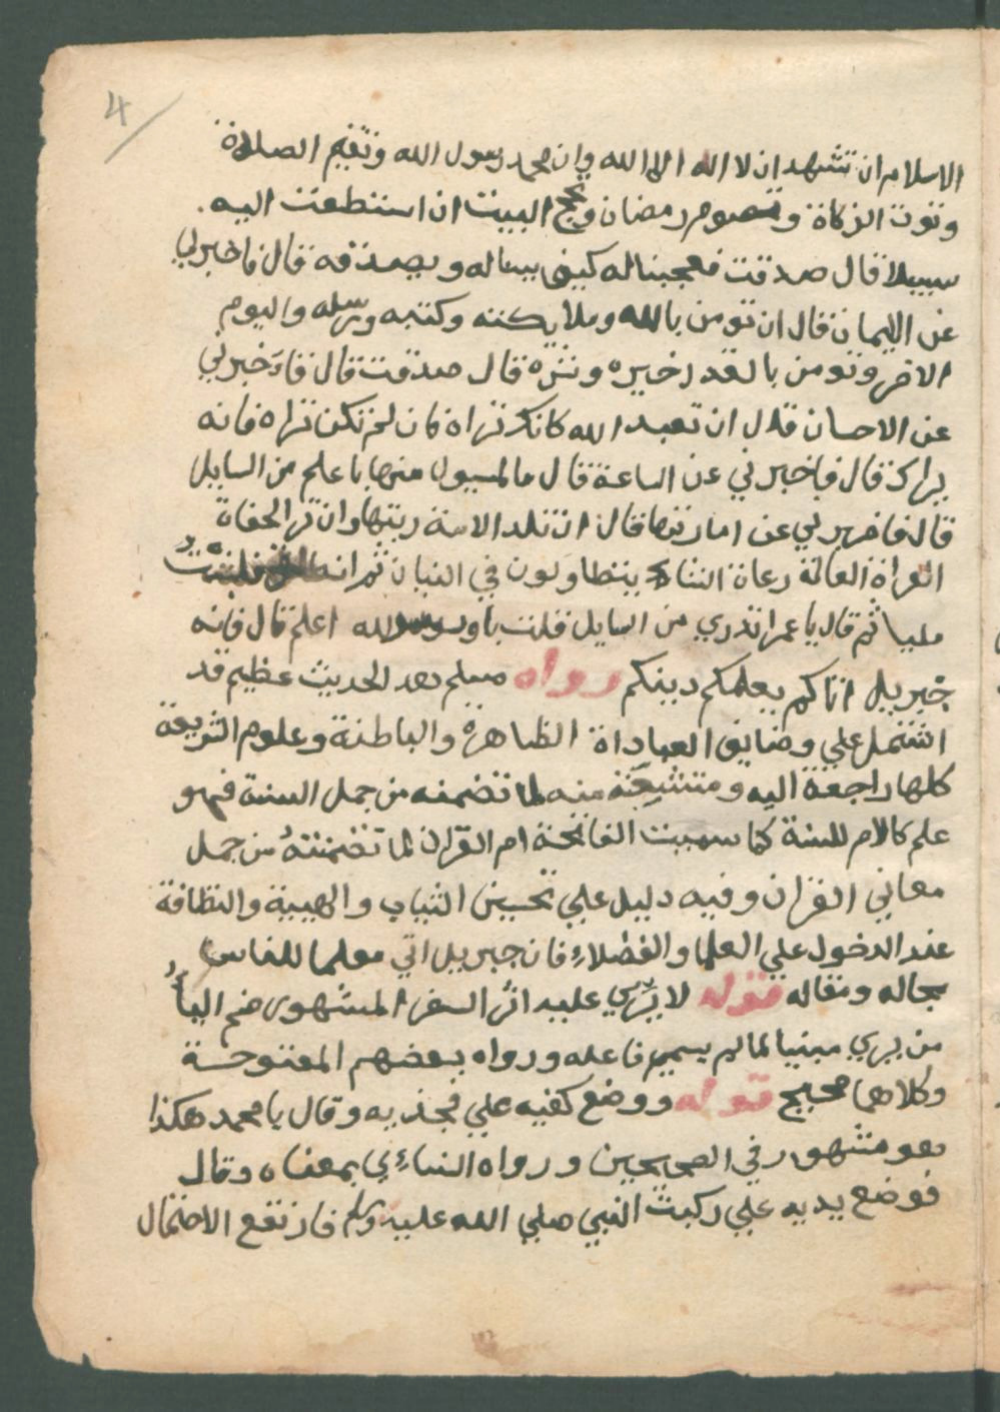 4
الاسلام ان تشهد ان لا اله الا الله وان محمد رسول الله وتقيم الصلاة
وتوت الزكاة وتصوم رمضان وتحج البيت ان استطعت اليه
سبيلا قال صدقت فعجبنا له كيف يساله ويصدقه قال فاخبرني
عن الايمان قال ان تومن بالله وملايكته وكتبه ورسله واليوم
الاخر وتومن بالقدر خيره وشره قال صدقت قال فاخبرني
عن الاحسان قال ان تعبد الله كانك تراه فان لم تكن تراه فانه
يراك قال فاخبرني عن الساعة قال ما لمسيول عنها باعلم من السايل
قال فاخبرني عن اماراتها قال ان تلد الامة ربتها وان ترا الحفاة
العراة العالة رعاة الشاء يتطاولون في البنيان ثم انطلق فلبثت
مليا ثم قال يا عمر اتدري من السايل قلت الله ورسوله اعلم قال فانه
جبريل اتاكم يعلمكم دينكم رواه مسلم هذا الحديث عظيم قد
اشتمل علي وضايف العباداة الظاهرة والباطنة وعلوم الشريعة
كلها راجعة اليه ومتشعبة منه لما تضمنه من جمل السنة فهو
علم كالام للسنة كما سميت الفاتحة ام القران لما تضمنته من جمل
معاني القران وفيه دليل علي تحسين الثياب والهيية والنظافة
عند الدخول علي العلما والفضلاء فان جبريل اتي معلما للناس
بحاله ومقاله قوله لا يري عليه اثر السفر المشهور ضم اليا
من يري مبنيا لما لم يسمي فاعله ورواه بعضهم المفتوحة
وكلاهما صحيح قوله ووضع كفيه علي فخذيه وقال يا محمد هكذا
هو مشهور في الصحيحين ورواه النساءي بمعناه وقال
فوضع يديه علي ركبت النبي صلي الله عليه وسلم فارتفع الاحتمال